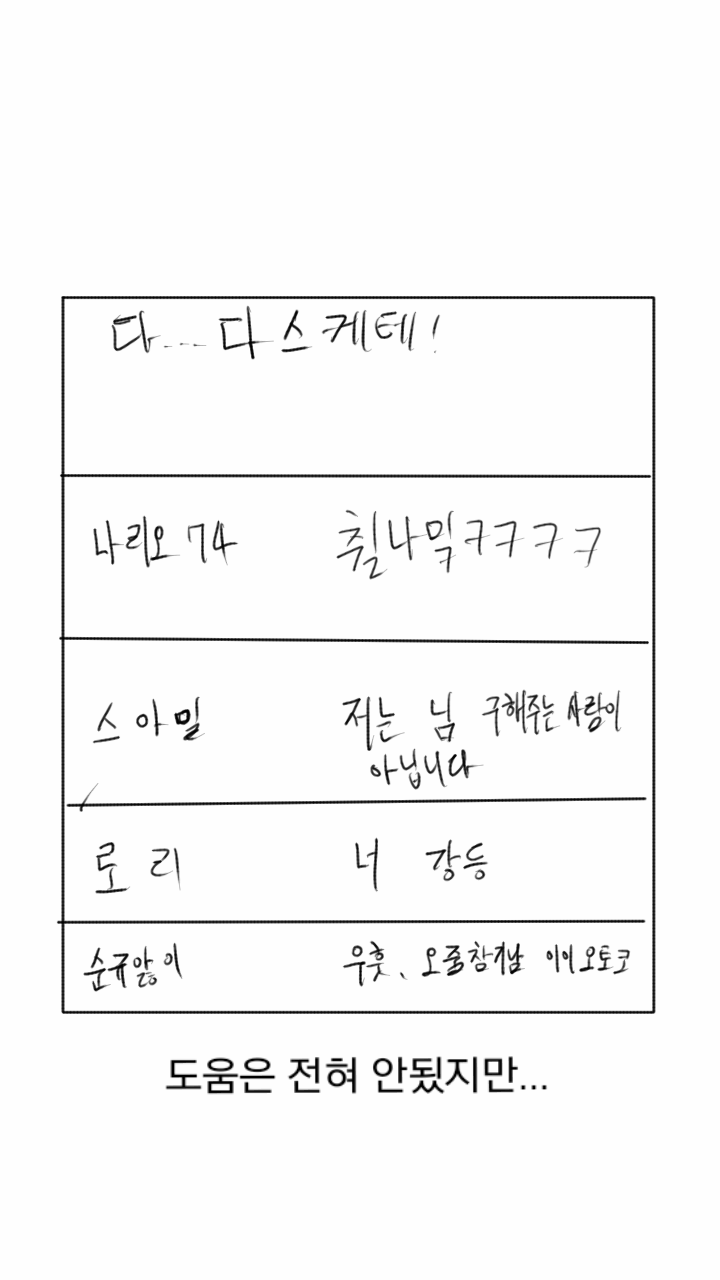 다...다스케테!
나리오74 칠나밐ㅋㅋㅋㅋ
스아밀 저는 님 구해주는 사람이
아닙니다
로리 너 강등
순규앓이 우훗、오줌참기남 이이오토코
도움은 전혀 안됬지만...